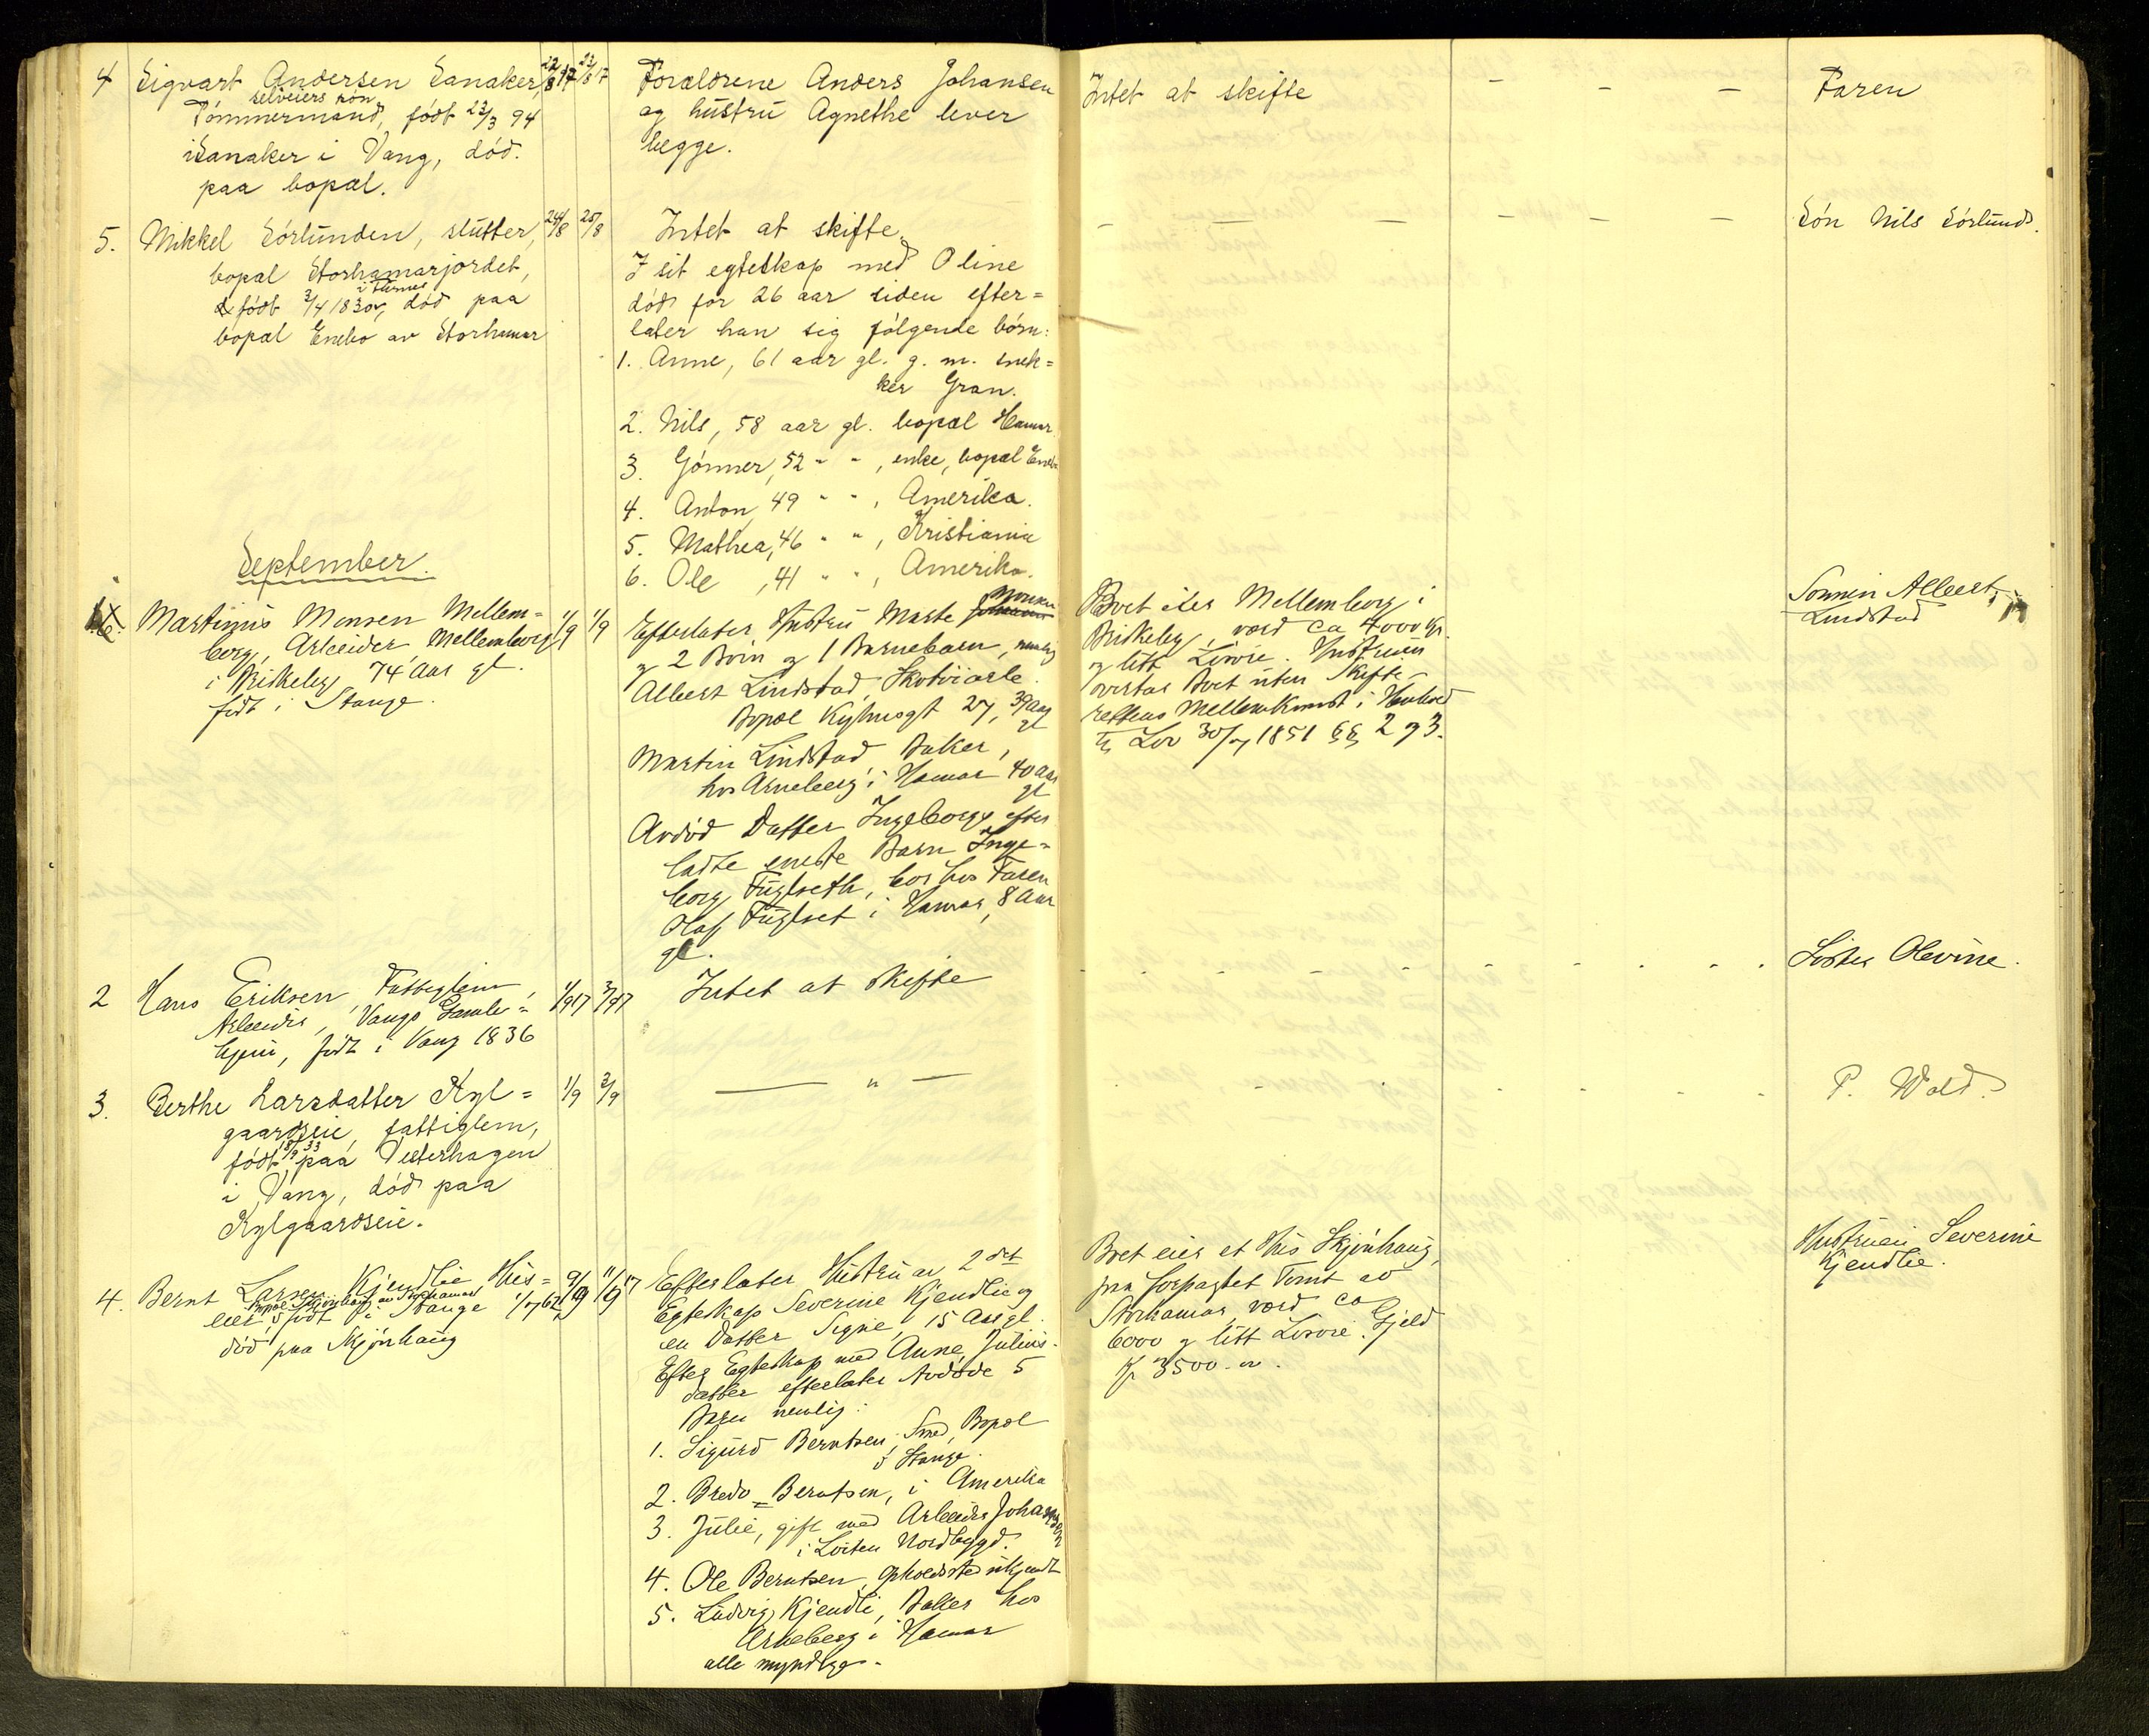 4 Sigvart Andersen Sanaker, 22/8 17 23/8 17
selveiers søn
Tømmermand, født 23/3 94
i Sanaker i Vang, død.
paa bopæl.
Forældrene Anders Johansen
og hustru Agnethe lever
begge.
Intet at skifte - - -
Faren
5. Mikkel Sørlunden, slutter, 24/8 25/8
bopæl Storhamarjordet,
i Furnes
født 3/4 1830, død paa
bopæl Enebo av Storhamar
Intet at skifte.
I sit egteskap med Oline
død for 26 aar siden efter=
later han sig følgende børn:
1. Anne, 61 aar gl. g. m. snek=
ker Gran.
2. Nils, 58 aar gl. bopæl Hamar
3. Gønner, 52 " " , enke, bopæl Enebo
4. Anton, 49 " " , Amerika.
5. Mathea, 46 " " , Kristiania
6. Ole , 41 " " , Amerika.
- - - - - - -
Søn Nils Sørlund.
September.
1. Martinus Monsen Mellem= 1/9 1/9
borg, Arbeider Mellemborg
i Briskeby 74 Aar gl.
født i Stange.
Efterlater Hustru Marte
og 2 Børn og 1 Barnebarn, nemlig
Albert Lindstad, Skotøiarb.
Bopæl Kyhnsgt 27, 39 Aar
gl
Martin Lindstad, Baker,
hos Arneberg i Hamar 40 Aar
gl
Avdød Datter Ingeborgs efter
ladte eneste Barn Inge=
borg Fuglseth, bor hos Faren
Olaf Fuglset i Hamar, 8 Aar
gl.
Boet eier Mellemborg i
Briskeby, værd ca 4000 Kr.
og litt Løsøre. Hustruen
overtar Boet uten Skifte-
rettens Mellemkomst i Henhold
til Lov 30/7 1851 §§ 2 og 3.
Sønnen Albert
Lindstad
2 Hans Eriksen, Fattiglem, 1/9 17 3/9 17
Arbeider, Vangs Gamle=
hjem, født i Vang 1836
Intet at skifte
- - - - - - -
Søster Olevine.
3. Berthe Larsdatter Kyl= 1/9 3/9
gaardseie, fattiglem,
født 18/9 33 paa Vesterhagen
i Vang, død paa
Kylgaardseie.
— " —
- - - -
P. Wold.
4. Bernt Larsen Kjendlie Hus= 9/9 11/9 17
Bopæl Skjønhaug av Storhamar
eier, født i Stange 1/7 62
død paa Skjønhaug
Efterlater Hustru av 2det
Egteskap Severine Kjendlie og
en Datter Signe, 15 Aar gl.
Efter Egteskap med Anne Julius-
datter efterlater Avdøde 5
Barn nemlig:
1. Sigurd Berntsen, Smed, Bopæl
i Stange.
2. Bredo Berntsen, i Amerika
3. Julie, gift med Arbeider Johansen
i Løiten Nordbygd.
4. Ole Berntsen, Opholdssted ukjendt
5. Ludvig Kjendli, Baker hos
Arneberg i Hamar
alle myndige.
Boet eier et Hus Skjønhaug,
paa forpagtet Tomt av
Storhamar, værd ca
6000 og litt Løsøre. Gjeld
Kr 3500.
Hustruen Severine
Kjendlie.